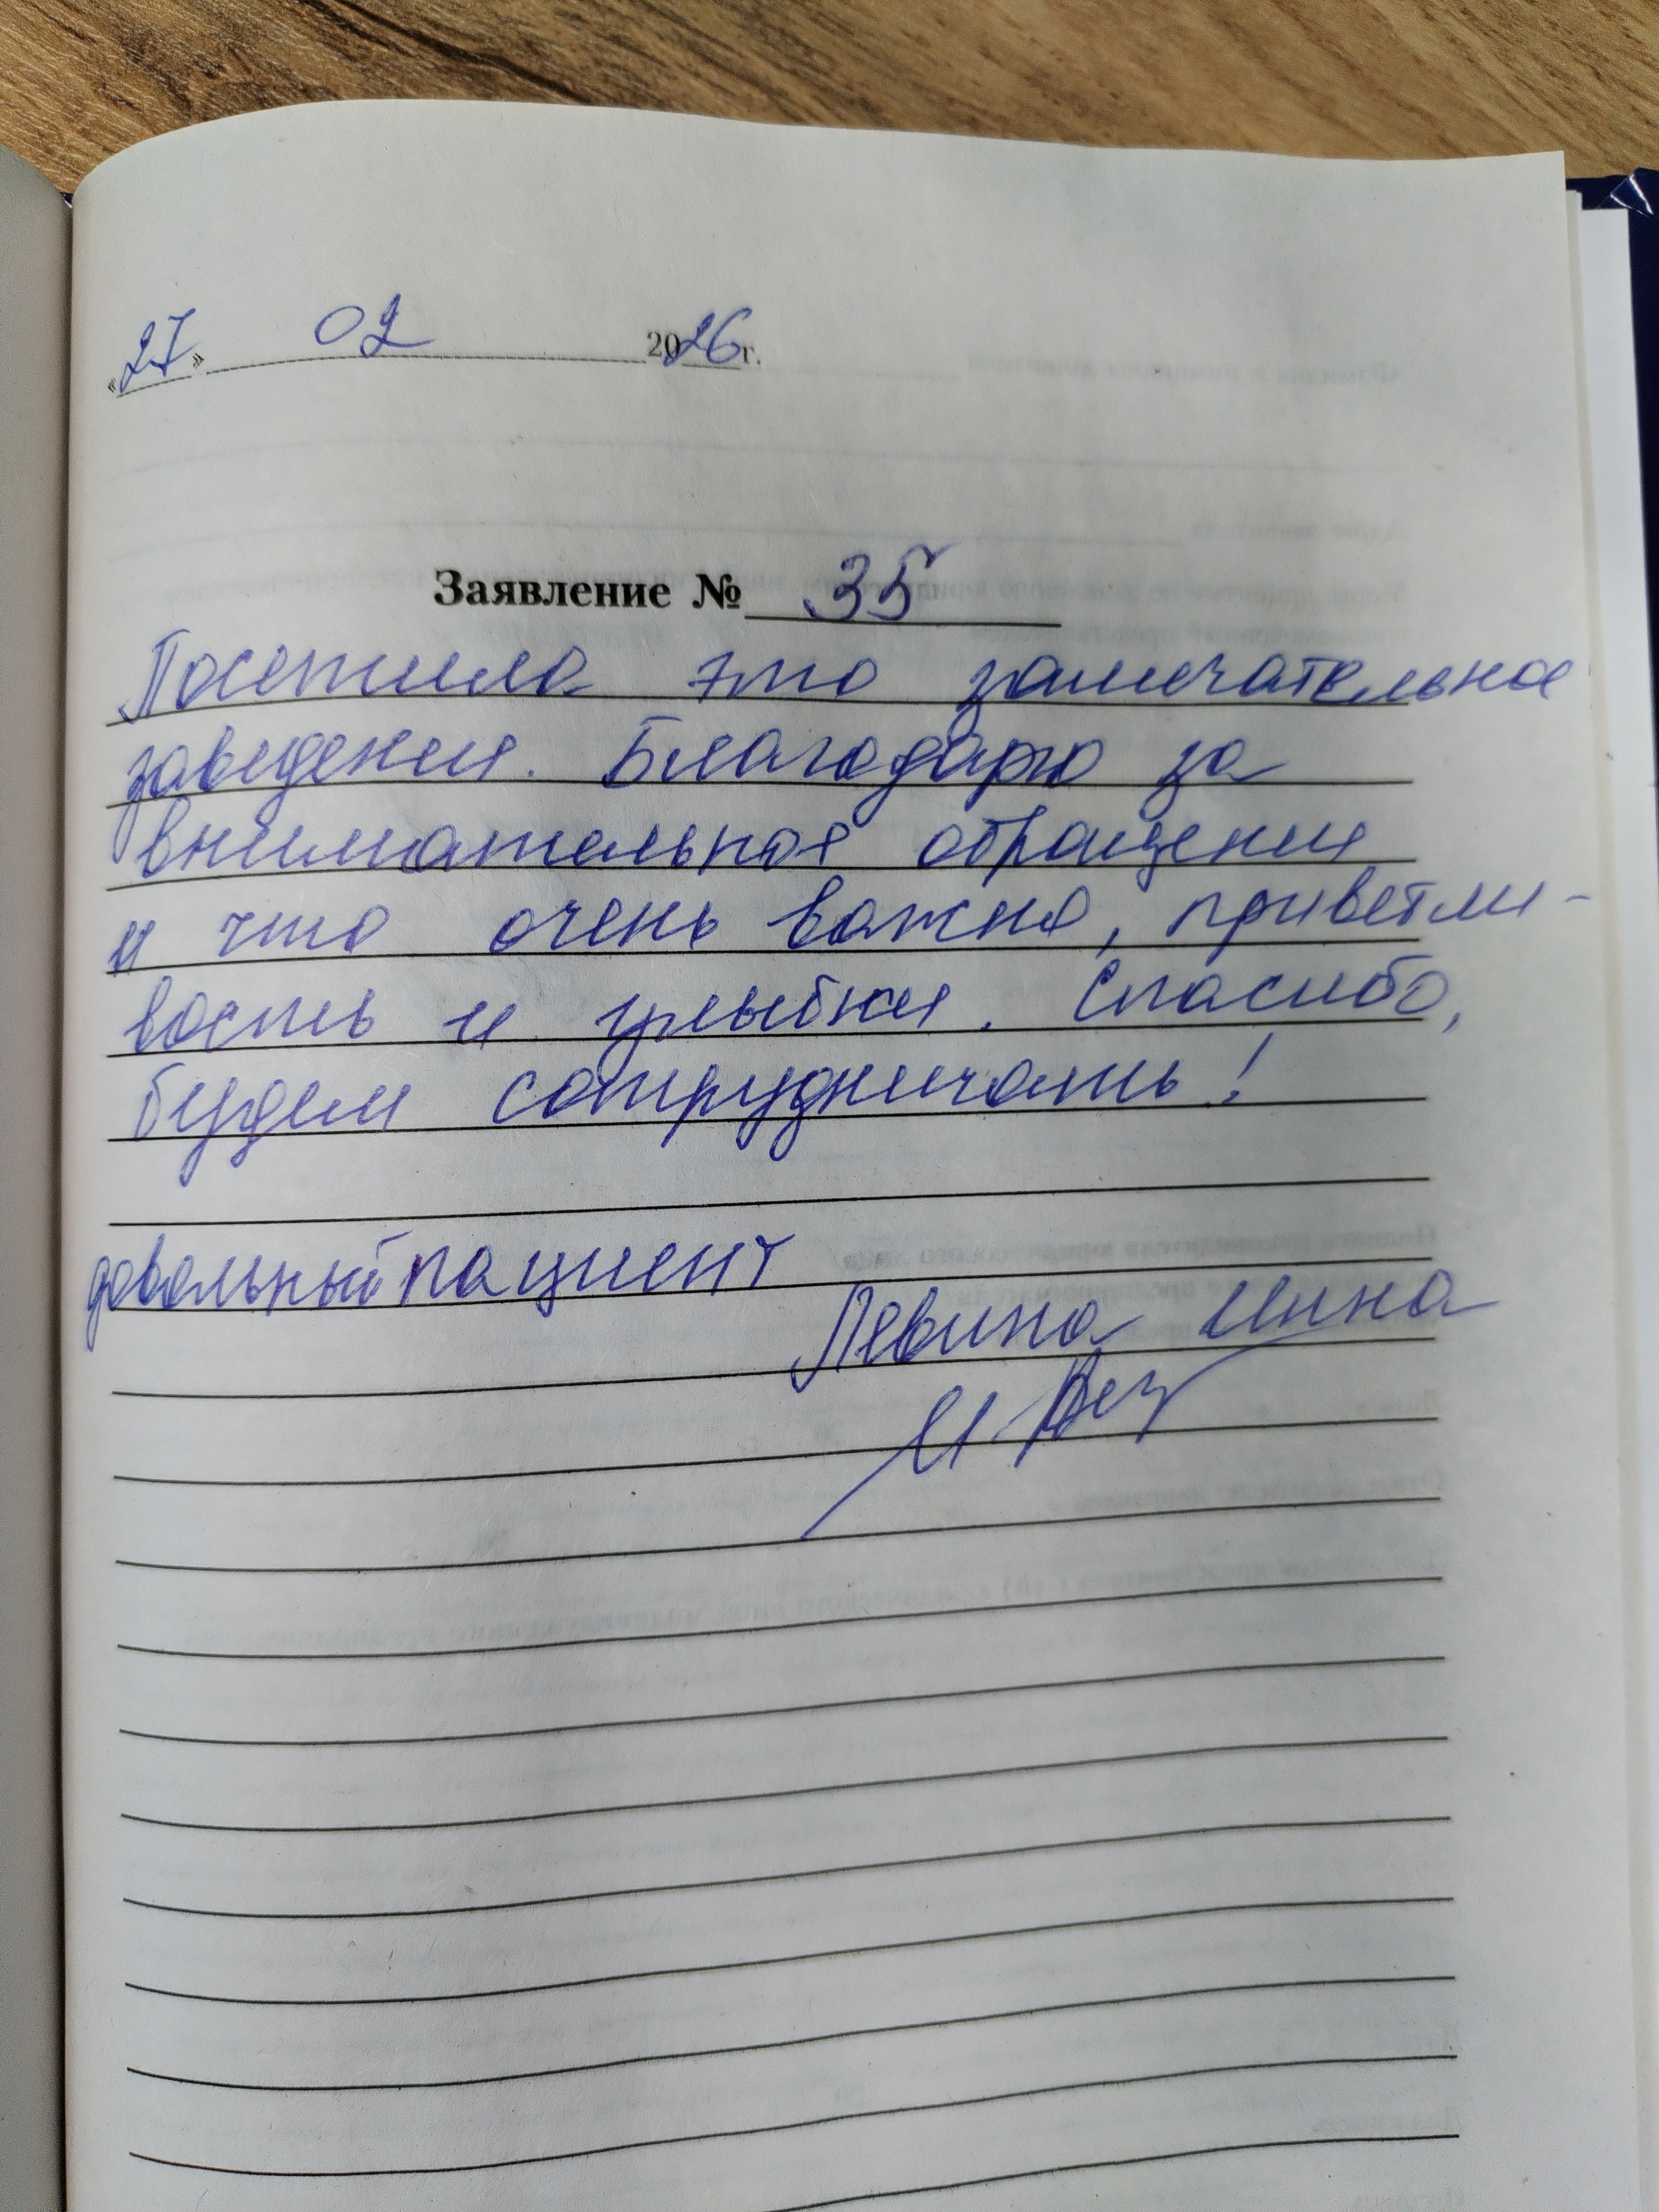 «27» 02 2026 г.
Заявление № 35
Посетила это замечательное
заведение. Благодарю за
внимательное обращение
и что очень важно, приветли-
вость и улыбки. Спасибо,
будем сотрудничать!
довольный пациент
Левина Инна